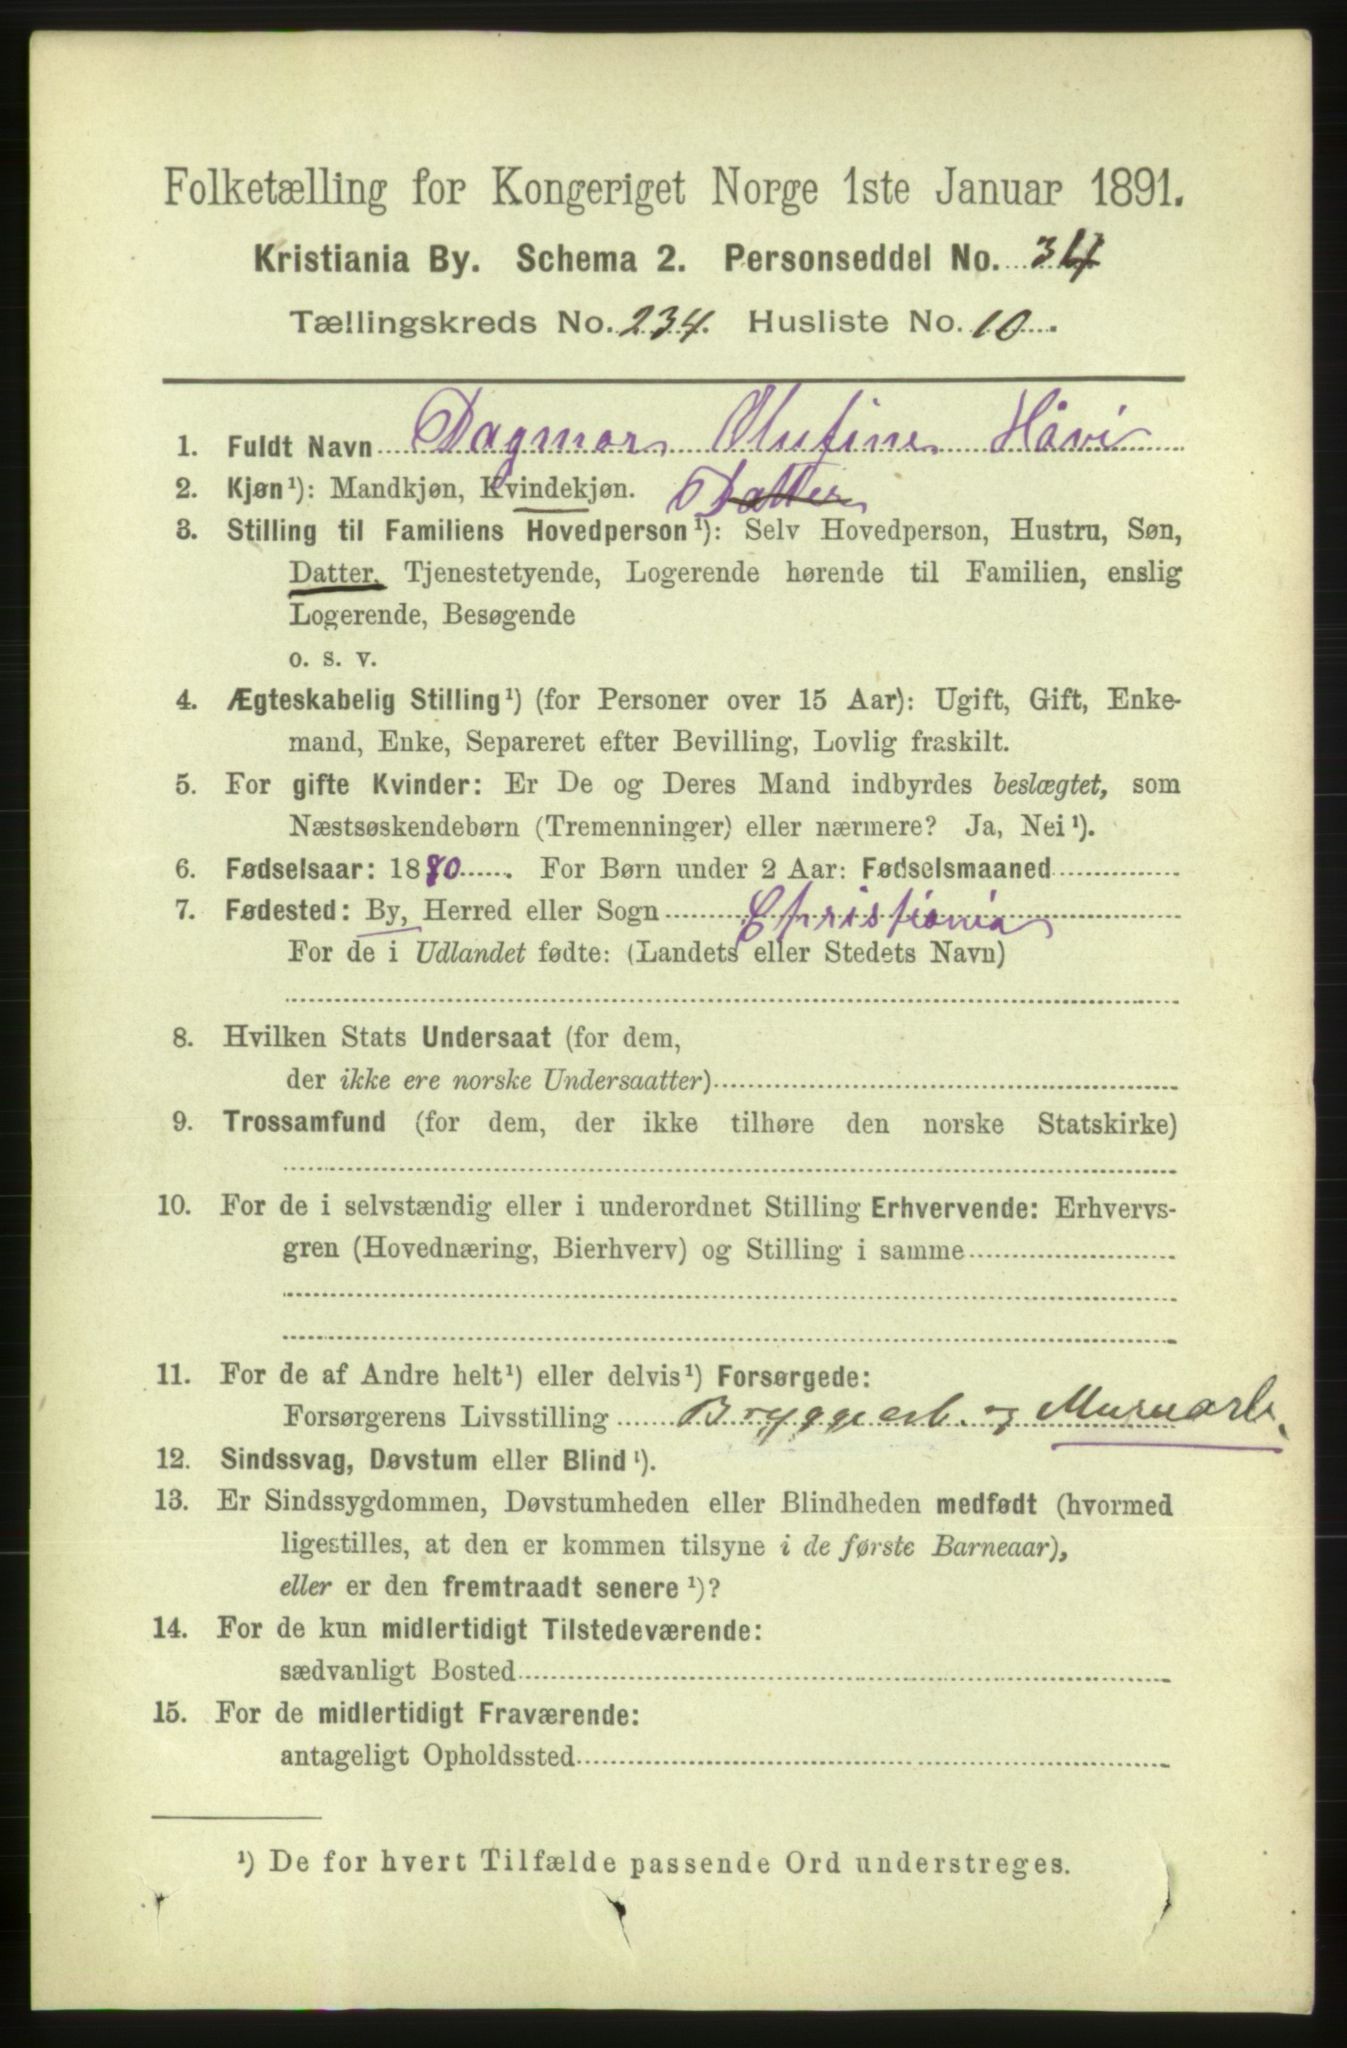 Folketælling for Kongeriget Norge 1ste Januar 1891.
Kristiania By. Schema 2. Personseddel No.
Tællingskreds No. 234. Husliste No. 10.
1. Fuldt Navn Dagmar Olufine Håvi
2. Kjøn¹): Mandkjøn, Kvindekjøn. Datter
3. Stilling til Familiens Hovedperson¹): Selv Hovedperson, Hustru, Søn,
Datter, Tjenestetyende, Logerende hørende til Familien, enslig
Logerende, Besøgende
o. s. v.
4. Ægteskabelig Stilling¹) (for Personer over 15 Aar): Ugift, Gift, Enke-
mand, Enke, Separeret efter Bevilling, Lovlig fraskilt.
5. For gifte Kvinder: Er De og Deres Mand indbyrdes beslægtet, som
Næstsøskendebørn (Tremenninger) eller nærmere? Ja, Nei¹).
6. Fødselsaar: 1880. For Børn under 2 Aar: Fødselsmaaned
7. Fødested: By, Herred eller Sogn Christiania
For de i Udlandet fødte: (Landets eller Stedets Navn)
8. Hvilken Stats Undersaat (for dem,
der ikke ere norske Undersaatter)
9. Trossamfund (for dem, der ikke tilhøre den norske Statskirke)
10. For de i selvstændig eller i underordnet Stilling Erhvervende: Erhvervs-
gren (Hovednæring, Bierhverv) og Stilling i samme
11. For de af Andre helt¹) eller delvis¹) Forsørgede:
Forsørgerens Livsstilling Bryggearb. og Murarb.
12. Sindssvag, Døvstum eller Blind¹).
13. Er Sindssygdommen, Døvstumheden eller Blindheden medfødt (hvormed
ligestilles, at den er kommen tilsyne i de første Barneaar),
eller er den fremtraadt senere¹)?
14. For de kun midlertidigt Tilstedeværende:
sædvanligt Bosted
15. For de midlertidigt Fraværende:
antageligt Opholdssted
¹) De for hvert Tilfælde passende Ord understreges.